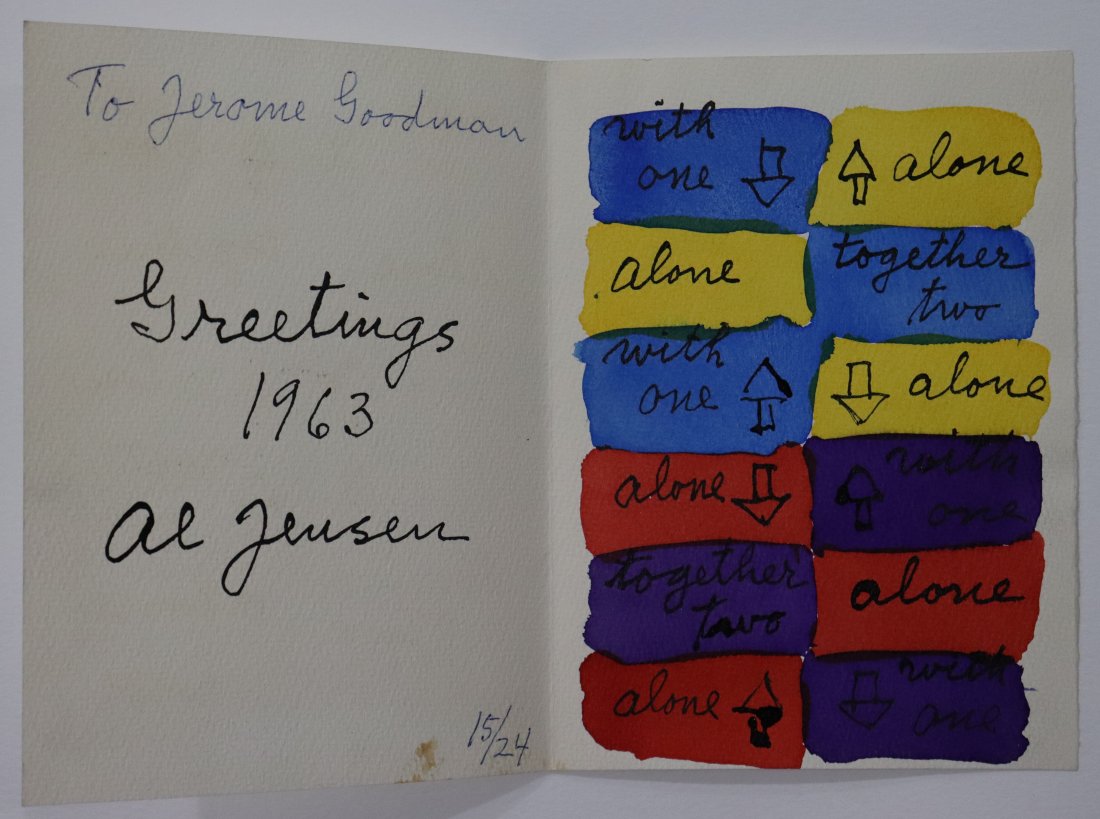 To Jerome Goodman
Greetings
1963
Al Jensen
15/24
with
one
alone
alone
together
two
with
one
alone
alone
with
one
together
two
alone
alone
with
one